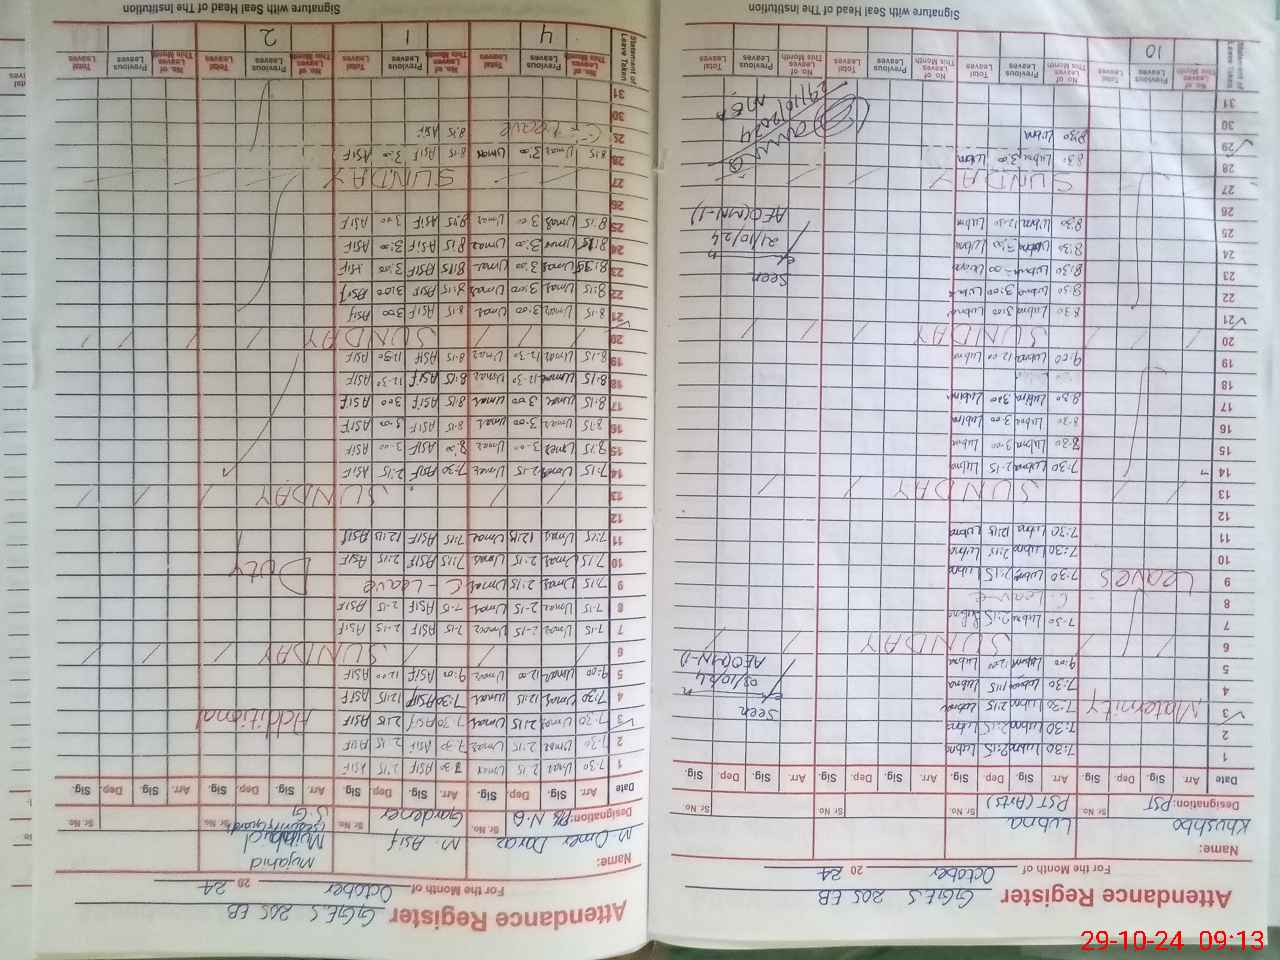 Attendance Register GGES 205 EB
For the Month of October 20 24
Name:
Khushbo
Lubna
Designation: PST
Sr. No
PST (Arts)
Sr. No
Sr. No
Date Arr. Sig. Dep. Sig. Arr. Sig. Dep. Sig. Arr. Sig. Dep. Sig. Arr. Sig. Dep. Sig.
1 7:30 Lubna 2:15 Lubna
2 7:30 Lubna 2:15 Lubna
3 Maternity 7:30 Lubna 2:15 Lubna
Seen
03/10/24
AEO(MN-1)
4 7:30 Lubna 1:15 Lubna
5 9:00 Lubna 12:00 Lubna
6 SUNDAY
7 7:30 Lubna 2:15 Lubna
8 C-Leave
9 Leaves 7:30 Lubna 2:15 Lubna
10 7:30 Lubna 2:15 Lubna
11 7:30 Lubna 12:15 Lubna
12
13 SUNDAY
14 7:30 Lubna 2:15 Lubna
15 8:30 Lubna 3:00 Lubna
16 8:30 Lubna 3:00 Lubna
17 8:30 Lubna 3:00 Lubna
18
19 9:00 Lubna 12:00 Lubna
20 SUNDAY
21 8:30 Lubna 3:00 Lubna
22 8:30 Lubna 3:00 Lubna
23 8:30 Lubna 3:00 Lubna
24 8:30 Lubna 3:00 Lubna
25 8:30 Lubna 12:30 Lubna
Seen
21/10/24
AEO(MN-1)
26
27 SUNDAY
28 8:30 Lubna 3:00 Lubna
29 8:30 Lubna
30
31
29/10/2024
Statement of Leave Taken
No. of Leaves This Month Previous Leaves Total Leaves No. of Leaves This Month Previous Leaves Total Leaves No. of Leaves This Month Previous Leaves Total Leaves
10
Signature with Seal Head of The Institution
Attendance Register GGES 205 EB
For the Month of October 20 24
Name:
M. Omer Daraz
M. Asif
Mujahid
Mujahid
Designation: N.Q
Sr. No.
Gardener
Sr. No
(Security Guard)
S.G
Sr. No.
Date Arr. Sig. Dep. Sig. Arr. Sig. Dep. Sig. Arr. Sig. Dep. Sig. Arr. Sig. Dep. Sig.
1 7:30 Umar 2:15 Umar 7:30 ASIF 2:15 ASIF
2 7:30 Umar 2:15 Umar 7:30 ASIF 2:15 ASIF
3 7:30 Umar 2:15 Umar 7:30 ASIF 2:15 ASIF Additional
4 7:30 Umar 12:15 Umar 7:30 ASIF 12:15 ASIF
5 9:00 Umar 12:00 Umar 9:00 ASIF 12:00 ASIF
6 SUNDAY
7 7:15 Umar 2:15 Umar 7:15 ASIF 2:15 ASIF
8 7:15 Umar 2:15 Umar 7:15 ASIF 2:15 ASIF
9 7:15 Umar 2:15 Umar C-Leave Duty
10 7:15 Umar 2:15 Umar 7:15 ASIF 2:15 ASIF
11 7:15 Umar 12:15 Umar 7:15 ASIF 12:15 ASIF
12
13 SUNDAY
14 7:15 Umar 2:15 Umar 7:30 ASIF 2:15 ASIF
15 8:15 Umar 3:00 Umar 8:00 ASIF 3:00 ASIF
16 8:15 Umar 3:00 Umar 8:15 ASIF 3:00 ASIF
17 8:15 Umar 3:00 Umar 8:15 ASIF 3:00 ASIF
18 8:15 Umar 12:30 Umar 8:15 ASIF 12:30 ASIF
19 8:15 Umar 12:30 Umar 8:15 ASIF 12:30 ASIF
20 SUNDAY
21 8:15 Umar 3:00 Umar 8:15 ASIF 3:00 ASIF
22 8:15 Umar 3:00 Umar 8:15 ASIF 3:00 ASIF
23 8:15 Umar 3:00 Umar 8:15 ASIF 3:00 ASIF
24 8:15 Umar 3:00 Umar 8:15 ASIF 3:00 ASIF
25 8:15 Umar 3:00 Umar 8:15 ASIF 3:00 ASIF
26
27 SUNDAY
28 8:15 Umar 3:00 Umar 8:15 ASIF 3:00 ASIF
29 C-Leave 8:15 ASIF
30
31
Statement of Leave Taken
No. of Leaves This Month Previous Leaves Total Leaves No. of Leaves This Month Previous Leaves Total Leaves No. of Leaves This Month Previous Leaves Total Leaves
4 1 2
Signature with Seal Head of The Institution
29-10-24 09:13